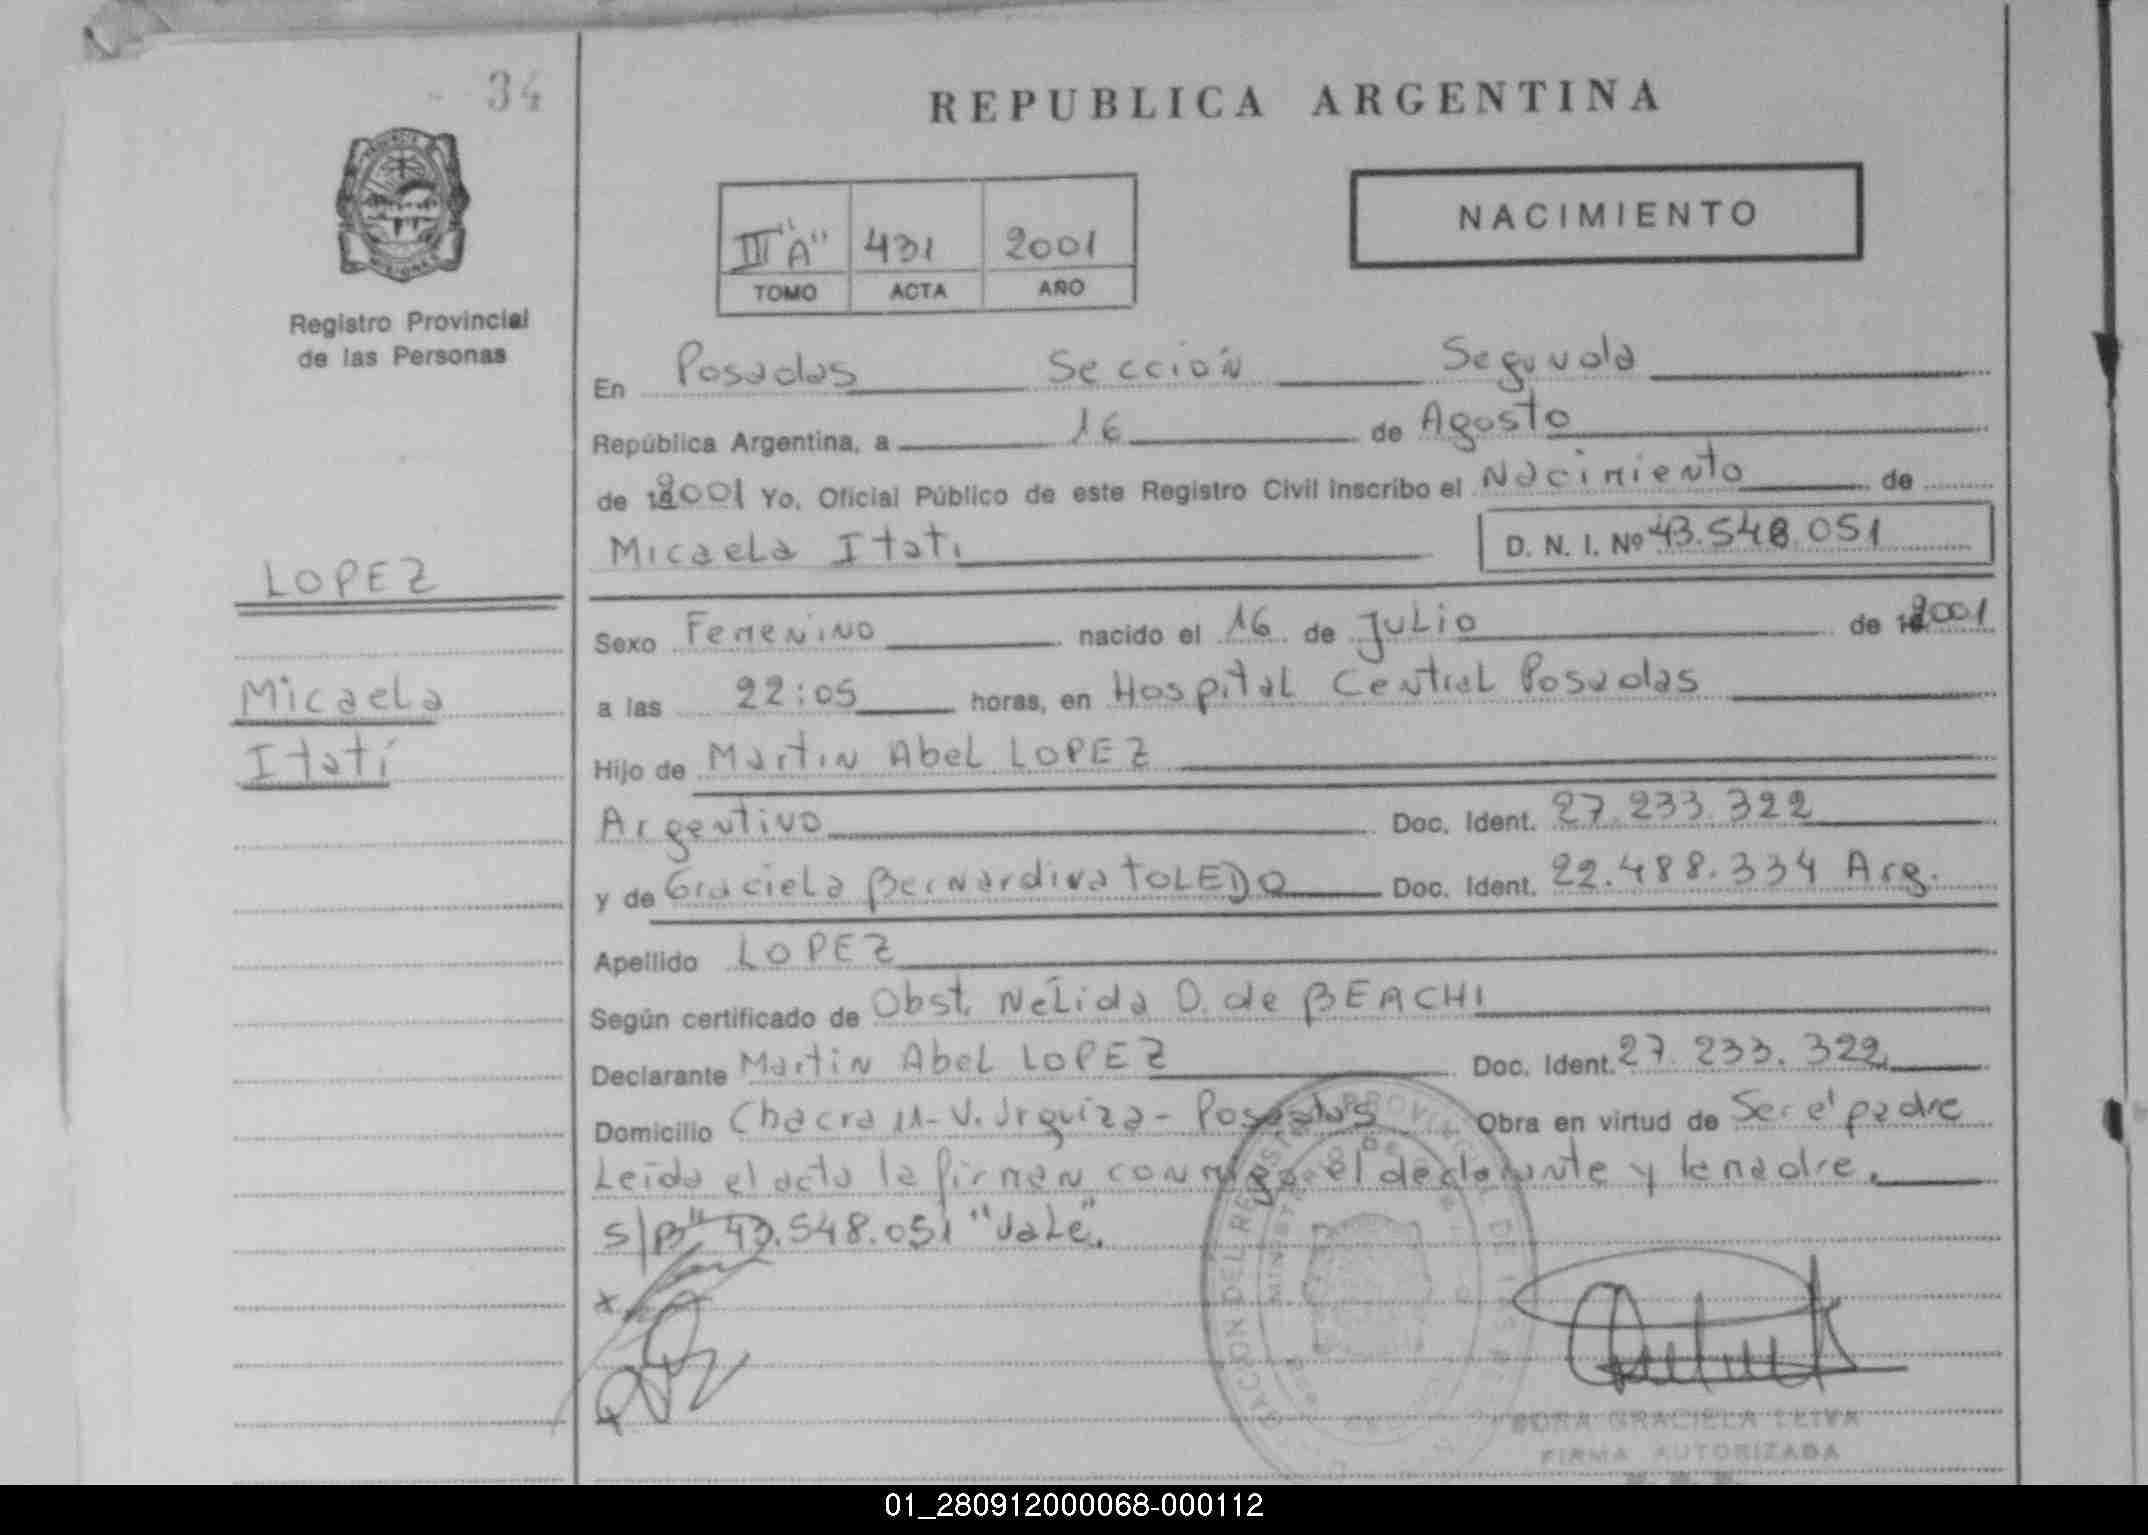 34
REPUBLICA ARGENTINA
NACIMIENTO
III "A" 431 2001
TOMO ACTA AÑO
Registro Provincial
de las Personas
En Posadas Sección Segunda
República Argentina, a 16 de Agosto
de 2001 Yo, Oficial Público de este Registro Civil inscribo el Nacimiento de
Micaela Itatí D. N. I. Nº 43.548.051
LOPEZ
Sexo Femenino nacido el 16 de Julio de 2001
Micaela
Itatí
a las 22:05 horas, en Hospital Central Posadas
Hijo de Martin Abel LOPEZ
Argentino Doc. Ident. 27.233.322
y de Graciela Bernardina TOLEDO Doc. Ident. 22.488.334 Arg.
Apellido LOPEZ
Según certificado de Obst. Nélida D. de BEACHI
Declarante Martin Abel LOPEZ Doc. Ident. 27.233.322
Domicilio Chacra 11-V. Urquiza- Posadas Obra en virtud de Ser el padre
Leída el acta la firman conmigo el declarante y la madre.
S/B" 43.548.051 "Vale".
GRACIELA LEIVA
FIRMA AUTORIZADA
01_280912000068-000112